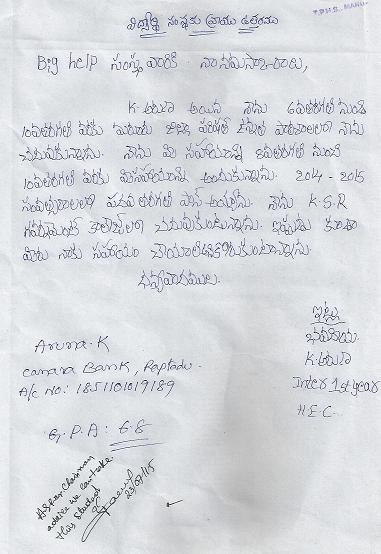 Z.P.H.S. MANU
విద్యార్థి సంస్థకు వ్రాయు ఉత్తరము
Big help సంస్థ వారికి నా నమస్కారాలు,
K. అరుణ అయిన నేను 6వతరగతి నుండి
10వతరగతి వరకు జిల్లా పరిషత్ ఉన్నత పాఠశాలలో నేను
చదువుకున్నాను. నేను మీ సహాయాన్ని 8వతరగతి నుండి
10వతరగతి వరకు మీసహాయాన్ని అందుకున్నాను. 2014 - 2015
సంవత్సరాలలో పదవ తరగతి పాస్ అయ్యాను. నేను K.S.R
గవర్నమెంట్ కాలేజ్‌లో చదువుకుంటున్నాను. ఇప్పుడు కూడా
మీరు నాకు సహాయం చేయాలని కోరుకుంటున్నాను.
ధన్యవాదములు.
ఇట్లు
భవదీయ
K. అరుణ
Inter 1st year
H.E.C
Aruna.K
canara Bank, Raptadu.
A/c No: 1851101019189
G.P.A: 6.8
As per Chairman
advice we can take
this student
23/07/15